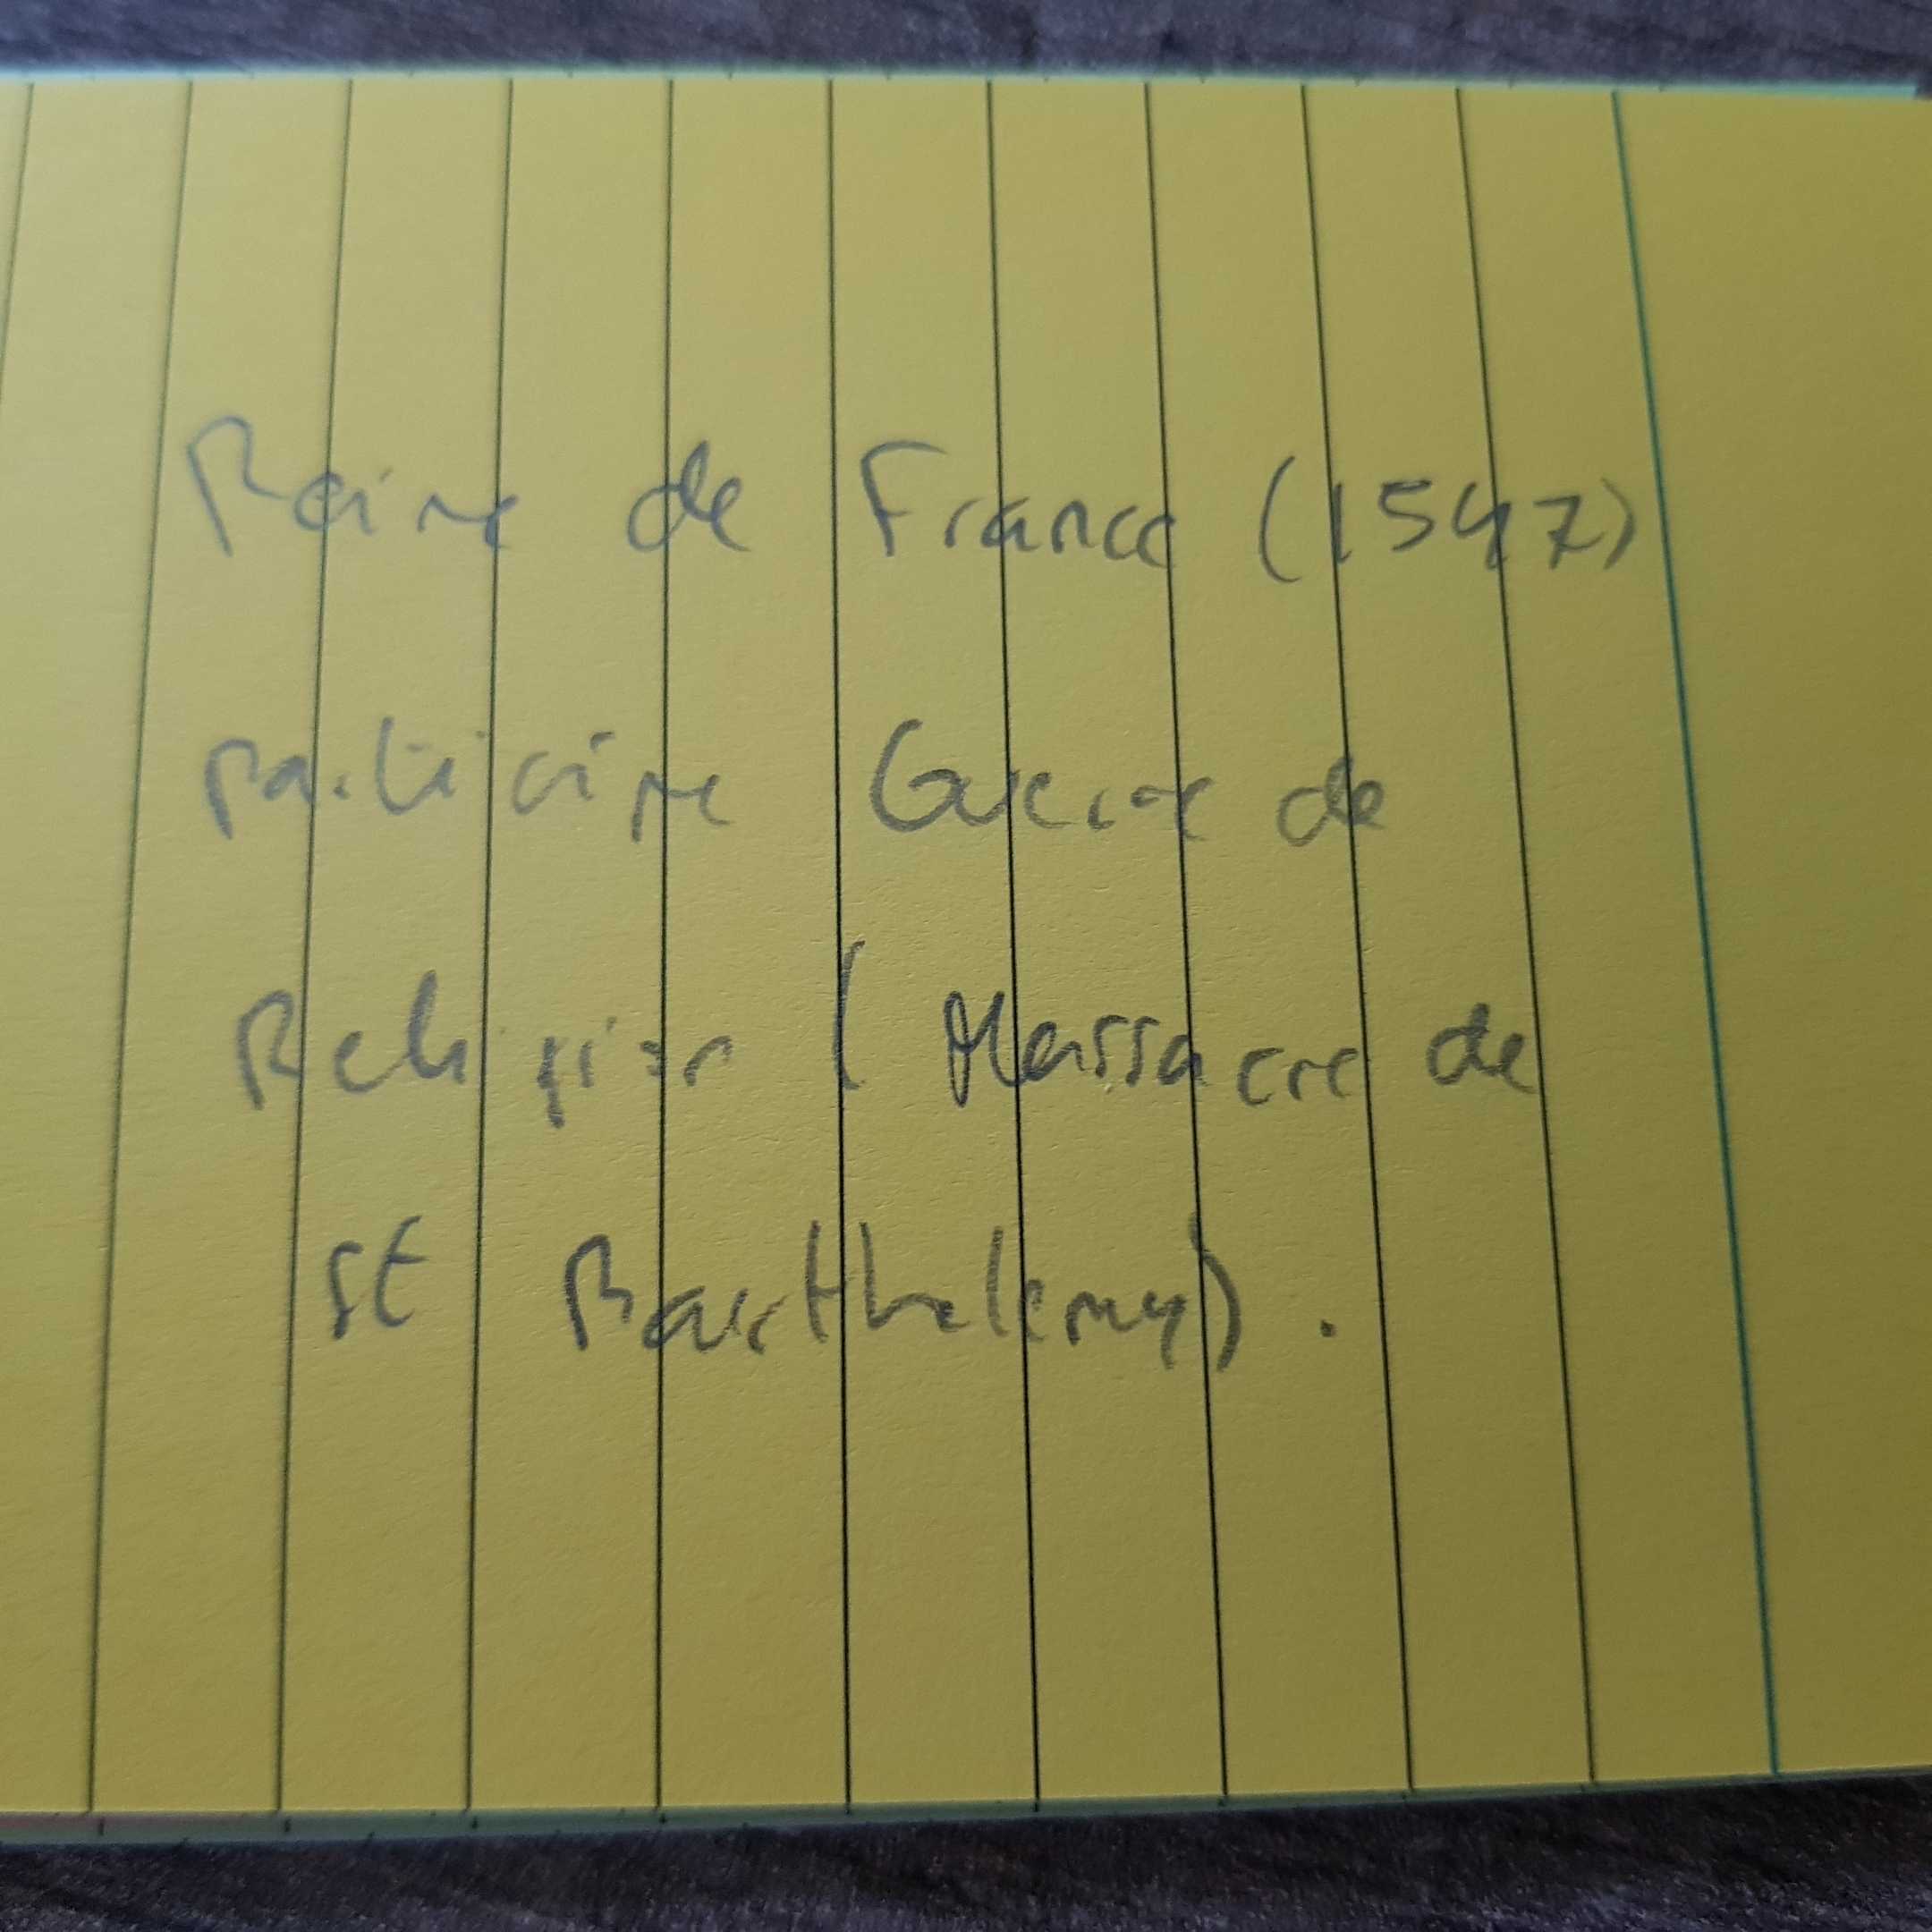 Reine de France (1547)
participe Guerre de
Religion (Massacre de
St Barthelemy).